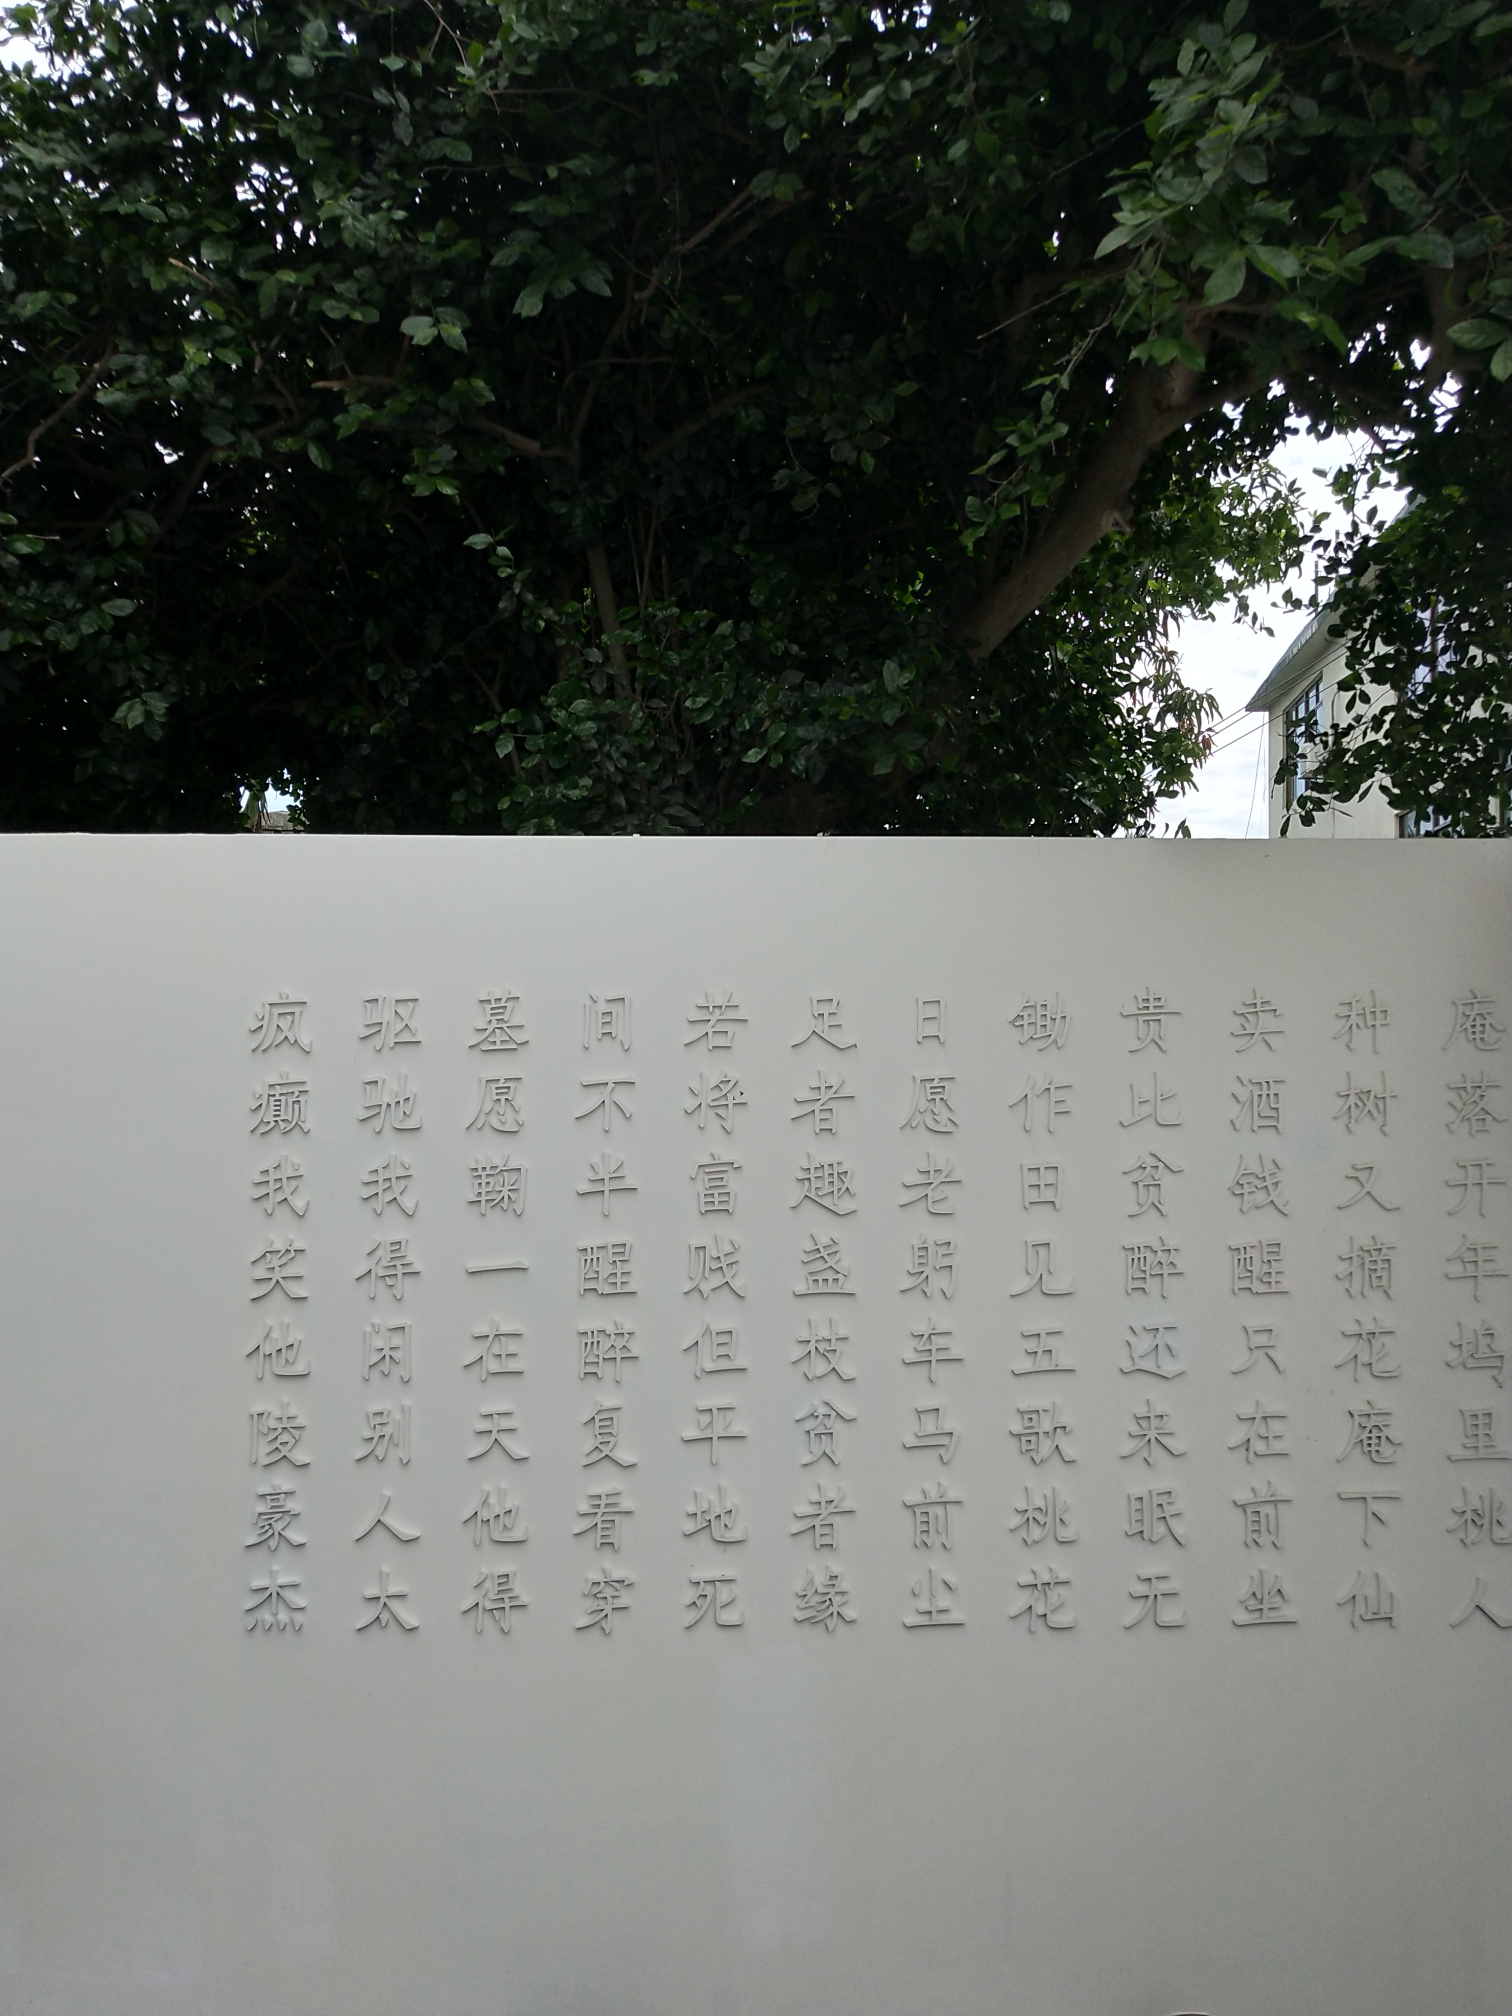 庵落开年坞里桃人
种树又摘花庵下仙
卖酒钱醒只在前坐
贵比贫醉还来眠无
锄作田见五歌桃花
日愿老躬车马前尘
足者趣盏枝贫者缘
若将富贱但平地死
间不半醒醉复看穿
墓愿鞠一在天他得
驱驰我得闲别人太
疯癫我笑他陵豪杰